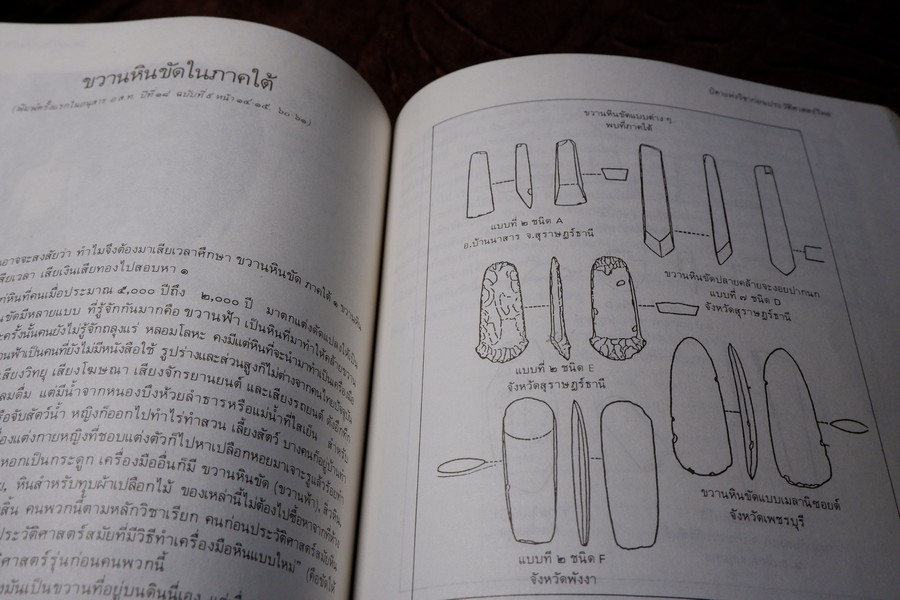 ขวานหินขัดในภาคใต้
(พิมพ์ครั้งแรกในอนุสาร อ.ส.ท. ปีที่ ๑๘ ฉบับที่ ๕ หน้า ๑๔-๑๕, ๖๐-๖๒)
อาจจะสงสัยว่า ทำไมจึงต้องมาเสียเวลาศึกษา ขวานหินขัด ภาคใต้
เสียเวลา เสียเงินเสียทองไปสอบหา
หินที่คนเมื่อประมาณ ๕,๐๐๐ ปีถึง ๒,๐๐๐ ปี มาตกแต่งดัดแปลงให้เป็น
มีหลายแบบ ที่รู้จักกันมากคือ ขวานฟ้า เป็นหินที่มาทำให้คล้ายขวาน
ครั้งนั้นคนยังไม่รู้จักถลุงแร่ หลอมโลหะ คงมีแต่หินที่จะนำมาทำเป็นเครื่องมือ
เป็นคนที่ยังไม่มีหนังสือใช้ รูปร่างและส่วนสูงก็ไม่ต่างจากคนไทยปัจจุบัน
เสียงวิทยุ เสียงโฆษณา เสียงจักรยานยนต์ และเสียงรถยนต์
แต่มีน้ำจากหนองบึงห้วยลำธารหรือแม่น้ำที่ใสเย็น สำหรับ
จับสัตว์น้ำ หญิงก็ออกไปทำไร่ทำสวน เลี้ยงสัตว์ บางคนก็อยู่บ้านทำ
เครื่องแต่งกายหญิงที่ชอบแต่งตัวก็ไปหาเปลือกหอยมาเจาะรูแล้วร้อยทำ
หอกเป็นกระดูก เครื่องมืออื่นก็มี ขวานหินขัด (ขวานฟ้า), สิ่วหิน,
หินสำหรับทุบผ้าเปลือกไม้ ของเหล่านี้ไม่ต้องไปซื้อหาจากที่ห้าง
คนพวกนี้ตามหลักวิชาเรียก คนก่อนประวัติศาสตร์สมัยหิน
ประวัติศาสตร์สมัยที่มีวิธีทำเครื่องมือหินแบบใหม่" (คือขัดให้
ศาสตร์รุ่นก่อนคนพวกนี้
มันเป็นขวานที่อยู่บนดินนี่เอง
ขวานหินขัดแบบต่าง ๆ
พบที่ภาคใต้
แบบที่ ๒ ชนิด A
อ.บ้านนาสาร จ.สุราษฎร์ธานี
ขวานหินขัดปลายคล้ายจะงอยปากนก
แบบที่ ๗ ชนิด D
จังหวัดสุราษฎร์ธานี
แบบที่ ๒ ชนิด E
จังหวัดสุราษฎร์ธานี
ขวานหินขัดแบบเมลานิซอยด์
จังหวัดเพชรบุรี
แบบที่ ๒ ชนิด F
จังหวัดพังงา